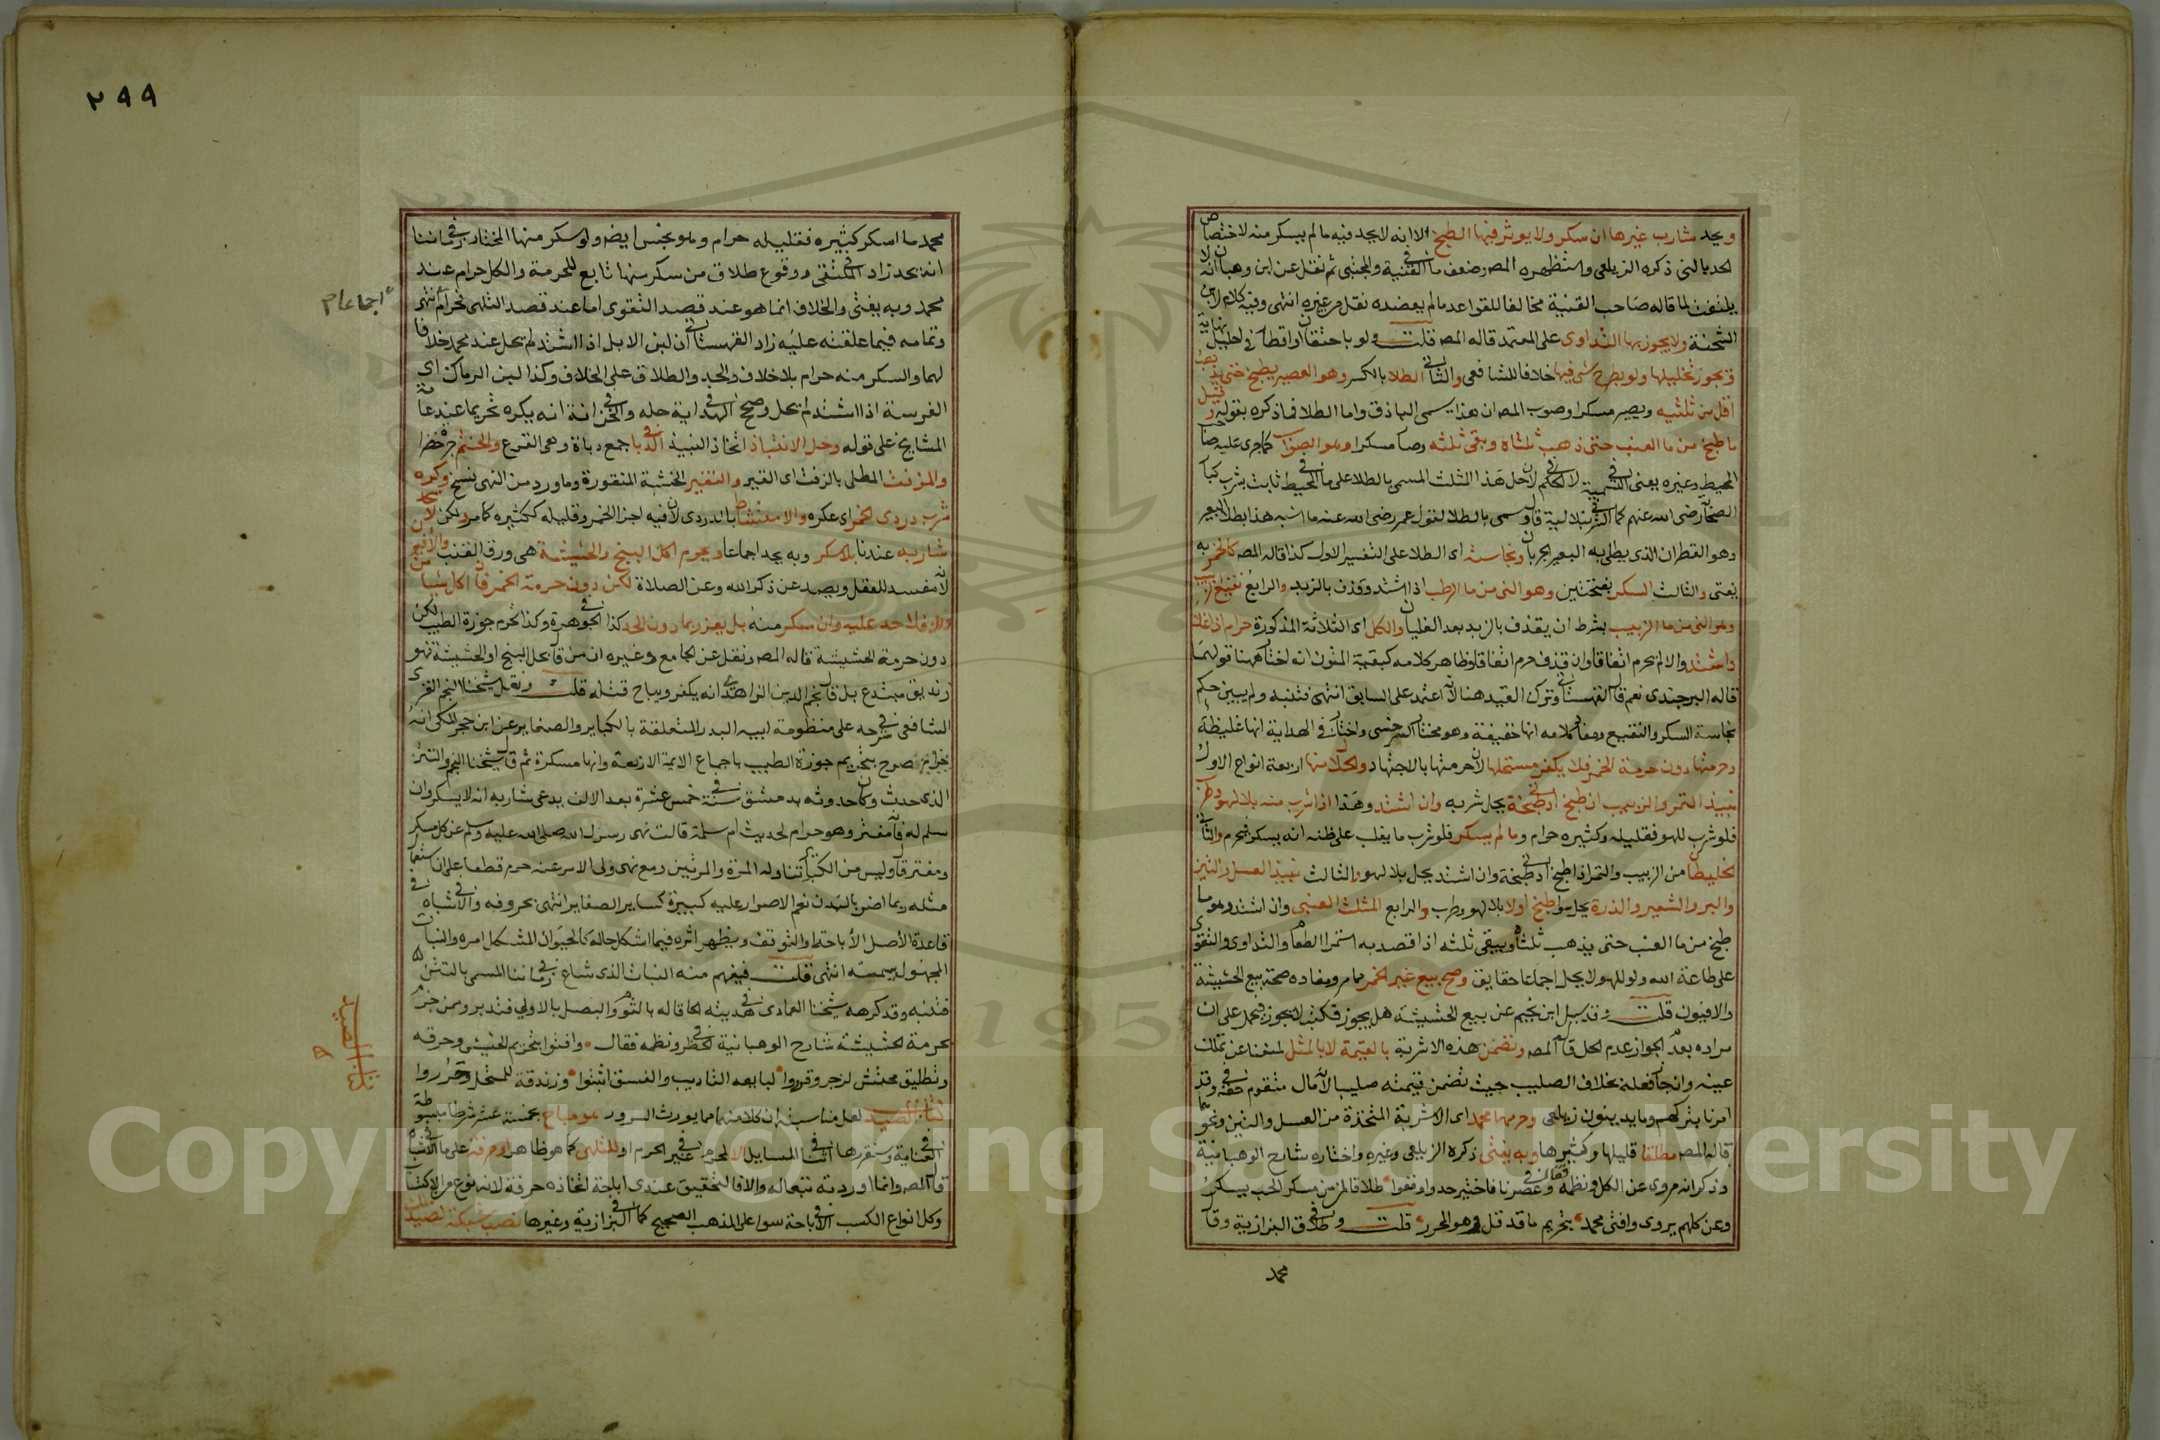 ويحد شارب غيرها ان سكر ولا يوثر فيها الطبخ الا انه لا يحد فيه مالم يسكر منه لاختصاص
الحد بالني ذكره الزيلعي واستظهره المصـ وضعف ما في القنية والمجتبي ثم نقل عن ابن وهبان انه لا
يلتفت لما قاله صاحب القنية مخالفا للقواعد مالم يعضده نقل من غيره انتهى وفيه كلام لابن
الشحنة ولا يجوز بها التداوي على المعتمد قاله المصـ قلت ولو باحتقان او اقطار في احليل نهاية
ويجوز تخليلها ولو بطرح شي فيها خلافا للشافعي والثاني الطلا بالكسر وهو العصير يطبخ حتى يذهب
اقل من ثلثيه ويصير مسكرا وصوب المصـ ان هذا يسمى الباذق واما الطلا فما ذكره بقوله وقيل
ما طبخ من ما العنب حتى ذهب ثلثاه وبقي ثلثه وصار مسكرا وهو الصواب كما جرى عليه صاحب
المحيط وغيره يعني في التسمية لا في الحكم لان حل هذا الثلث المسمى بالطلا على ما في المحيط ثابت بشرب كبار
الصحابة رضي الله عنهم كما في الشرنبلالية قال وسمى بالطلا لقول عمر رضي الله عنه ما اشبه هذا بطلا البعير
وهو القطران الذي يطلى به البعير الجربان ونجاسته اي الطلا على التفسير الاول كذا قاله المصـ كالخمر به
يفتى والثالث السكر بفتحتين وهو الني من ما الرطب اذا اشتد وقذف بالزبد والرابع نقيع الزبيب
وهو الني من ما الزبيب بشرط ان يقذف بالزبد بعد الغليان والكل اي الثلاثة المذكورة حرام اذا غلى
واشتد والا لم يحرم اتفاقا وان قذف حرم اتفاقا وظاهر كلامه كبقية المتون انه اختار ههنا قولهما
قاله البرجندي نعم قال القهستاني وترك القيد هنا لانه اعتمد على السابق انتهى فتنبه ولم يبين حكم
نجاسة السكر والنقيع ومفاد كلامه انها خفيفة وهو مختار السرخسي واختار في الهداية انها غليظة
وحرمتها دون حرمة الخمر فلا يكفر مستحلها لان حرمتها بالاجتهاد والحلال منها اربعة انواع الاول
نبيذ التمر والزبيب ان طبخ ادنى طبخة يحل شربه وان اشتد وهذا اذا شرب منه بلا لهو وطرب
فلو شرب للهو فقليله وكثيره حرام وما لم يسكر فلو شرب ما يغلب على ظنه انه يسكر فيحرم والثاني
الخليطان من الزبيب والتمر اذا طبخ ادنى طبخة وان اشتد يحل بلا لهو والثالث نبيذ العسل والتين
والبر والشعير والذرة يحل سوا طبخ اولا بلا لهو وطرب والرابع المثلث العنبي وان اشتد وهو ما
طبخ من ما العنب حتى يذهب ثلثاه ويبقى ثلثه اذا قصد به استمرا الطعام والتداوي والتقوى
على طاعة الله ولو للهو لا يحل اجماعا حقايق وصح بيع غير الخمر مما مر ومفاده صحة بيع الحشيشة
والافيون قلت وقد سيل ابن نجيم عن بيع الحشيشة هل يجوز فكتب لا يجوز فيحمل على ان
مراده بعدم الجواز عدم الحل قاله المصـ وتضمن هذه الاشربة بالقيمة لا بالمثل لمنعنا عن تملك
عينه وان جاز فعله بخلاف الصليب حيث تضمن قيمته صليبا لانه مال متقوم في حقه وقد
امرنا بتركهم وما يدينون زيلعي وحرمها محمد اي الاشربة المتخذة من العسل والتين ونحوهما
قاله المصـ مطلقا قليلها وكثيرها وبه يفتى ذكره الزيلعي وغيره واختاره شارح الوهبانية
وذكر انه مروي عن الكل ونظمه فقال وفي عصرنا فاختير حد واوقعوا طلاقا لمن من مسكر الحب يسكر
وعن كلهم يروى وافتى محمد بتحريم ما قد قل وهو المحرر قلت وفي طلاق البزازية وقال
محمد
٢٩٩
محمد ما اسكر كثيره فقليله حرام وهو نجس ايضا ولو سكر منها المختار في زماننا
انه يحد زاد في الملتقى ووقوع طلاق من سكر منها تابع للحرمة والكل حرام عند
محمد وبه يفتى والخلاف انما هو عند قصد التقوي اما عند قصد التلهي فحرام انتهى
اجماعا م
وتمامه فيما علقته عليه زاد القهستاني ان لبن الابل اذا اشتد لم يحل عند محمد خلافا
لهما والسكر منه حرام بلا خلاف والحد والطلاق على الخلاف وكذا لبن الرماك اي
الفرسة اذا اشتد لم يحل وصحح في الهداية حله وفي الخزانة انه يكره تحريما عند عامة
المشايخ على قوله وحل الانتباذ اتخاذ النبيذ في الدبا جمع دباة وهي القرع والحنتم جرة خضرا
والمزفت المطلي بالزفت اي القير والنقير الخشبة المنقورة وما ورد من النهي نسخ وكره
شرب دردي الخمر اي عكره والامتشاط بالدردي لان فيه اجزا الخمر وقليله ككثيره كما مر ولكن لا يحد
شاربه عندنا بلا سكر وبه يحد اجماعا ويحرم اكل البنج والحشيشة هي ورق القنب والافيون
لانه مفسد للعقل ويصد عن ذكر الله وعن الصلاة لكن دون حرمة الخمر فان اكل شيا من
ذلك فلا حد عليه وان سكر منه بل يعزر بما دون الحد كذا في الجوهرة وكذا تحرم جوزة الطيب لكن
دون حرمة الحشيشة قاله المصـ ونقل عن الجامع وغيره ان من قال بحل البنج او الحشيشة فهو
زنديق مبتدع بل قال نجم الدين الزاهدي انه يكفر ويباح قتله قلت ونقل شيخنا النجم الغزي
الشافعي في شرحه على منظومة ابيه البدر المتعلقة بالكباير والصغاير عن ابن حجر المكي انه
صرح بتحريم جوزة الطيب باجماع الايمة الاربعة وانها مسكرة ثم قال شيخنا النجم والتتن
الذي حدث وكان حدوثه بدمشق في سنة خمس عشرة بعد الالف يدعي شاربه انه لا يسكر وان
سلم له فانه مفتر وهو حرام لحديث ام سلمة قالت نهى رسول الله صلى الله عليه وسلم عن كل مسكر
ومفتر قال وليس من الكباير تناوله المرة والمرتين ومع نهي ولي الامر عنه حرم قطعا على ان استعمال
مثله ربما اضر بالبدن نعم الاصرار عليه كبيرة كساير الصغاير انتهى بحروفه وفي الاشباه في
قاعدة الاصل الاباحة او التوقف ويظهر اثره فيما اشكل حاله كالحيوان المشكل امره والنبات
المجهول سميته انتهى قلت فيفهم منه النبات الذي شاع في زماننا المسمى بالتتن
فتنبه وقد كرهه شيخنا العمادي في هديته الحاقا له بالثوم والبصل بالاولى فتدبر وممن جزم
بحرمة الحشيشة شارح الوهبانية في الحظر ونظمه فقال وافتوا بتحريم الحشيش وحرقه
وتطليق محتش لزجر وقرروا لبايعه التاديب والفسق اثبتوا وزندقة للمستحل وحرروا
كتاب الصيد لعل مناسبته ان كلا منهما مما يورث السرور هو مباح بخمسة عشر شرطا مبسوطة
كتاب الصيد
في العناية وسنقررها في اثنا المسايل الا لمحرم في غير الحرم او للتلهي كما هو ظاهر او حرفة على ما في الاشباه
قال المصـ وانما زدته تبعا له والا فالتحقيق عندي اباحة اتخاذه حرفة لانه نوع من الاكتساب
وكل انواع الكسب في الاباحة سوا على المذهب الصحيح كما في البزازية وغيرها نصب شبكة لصيد ملك